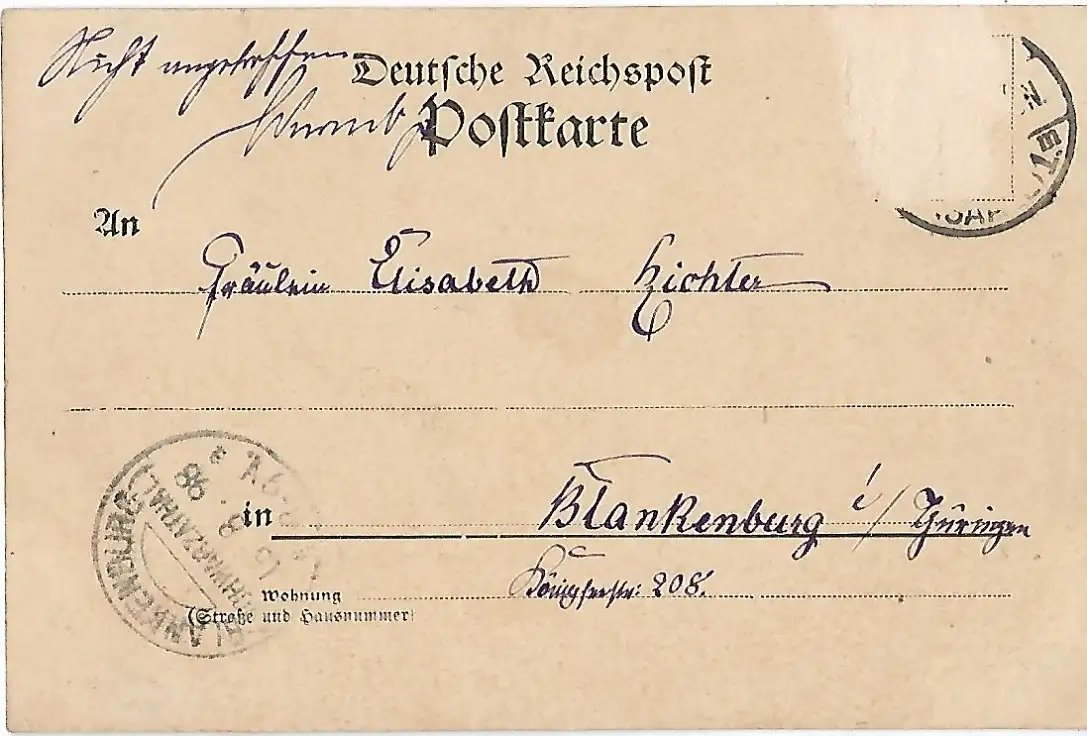 Nicht angetroffen
Deutsche Reichspost
Postkarte
An
Fräulein Elisabeth Richter
in Blankenburg i/Thüringen
Wohnung
(Straße und Hausnummer)
208.
BLANKENBURG
(SCHWARZATHAL)
98